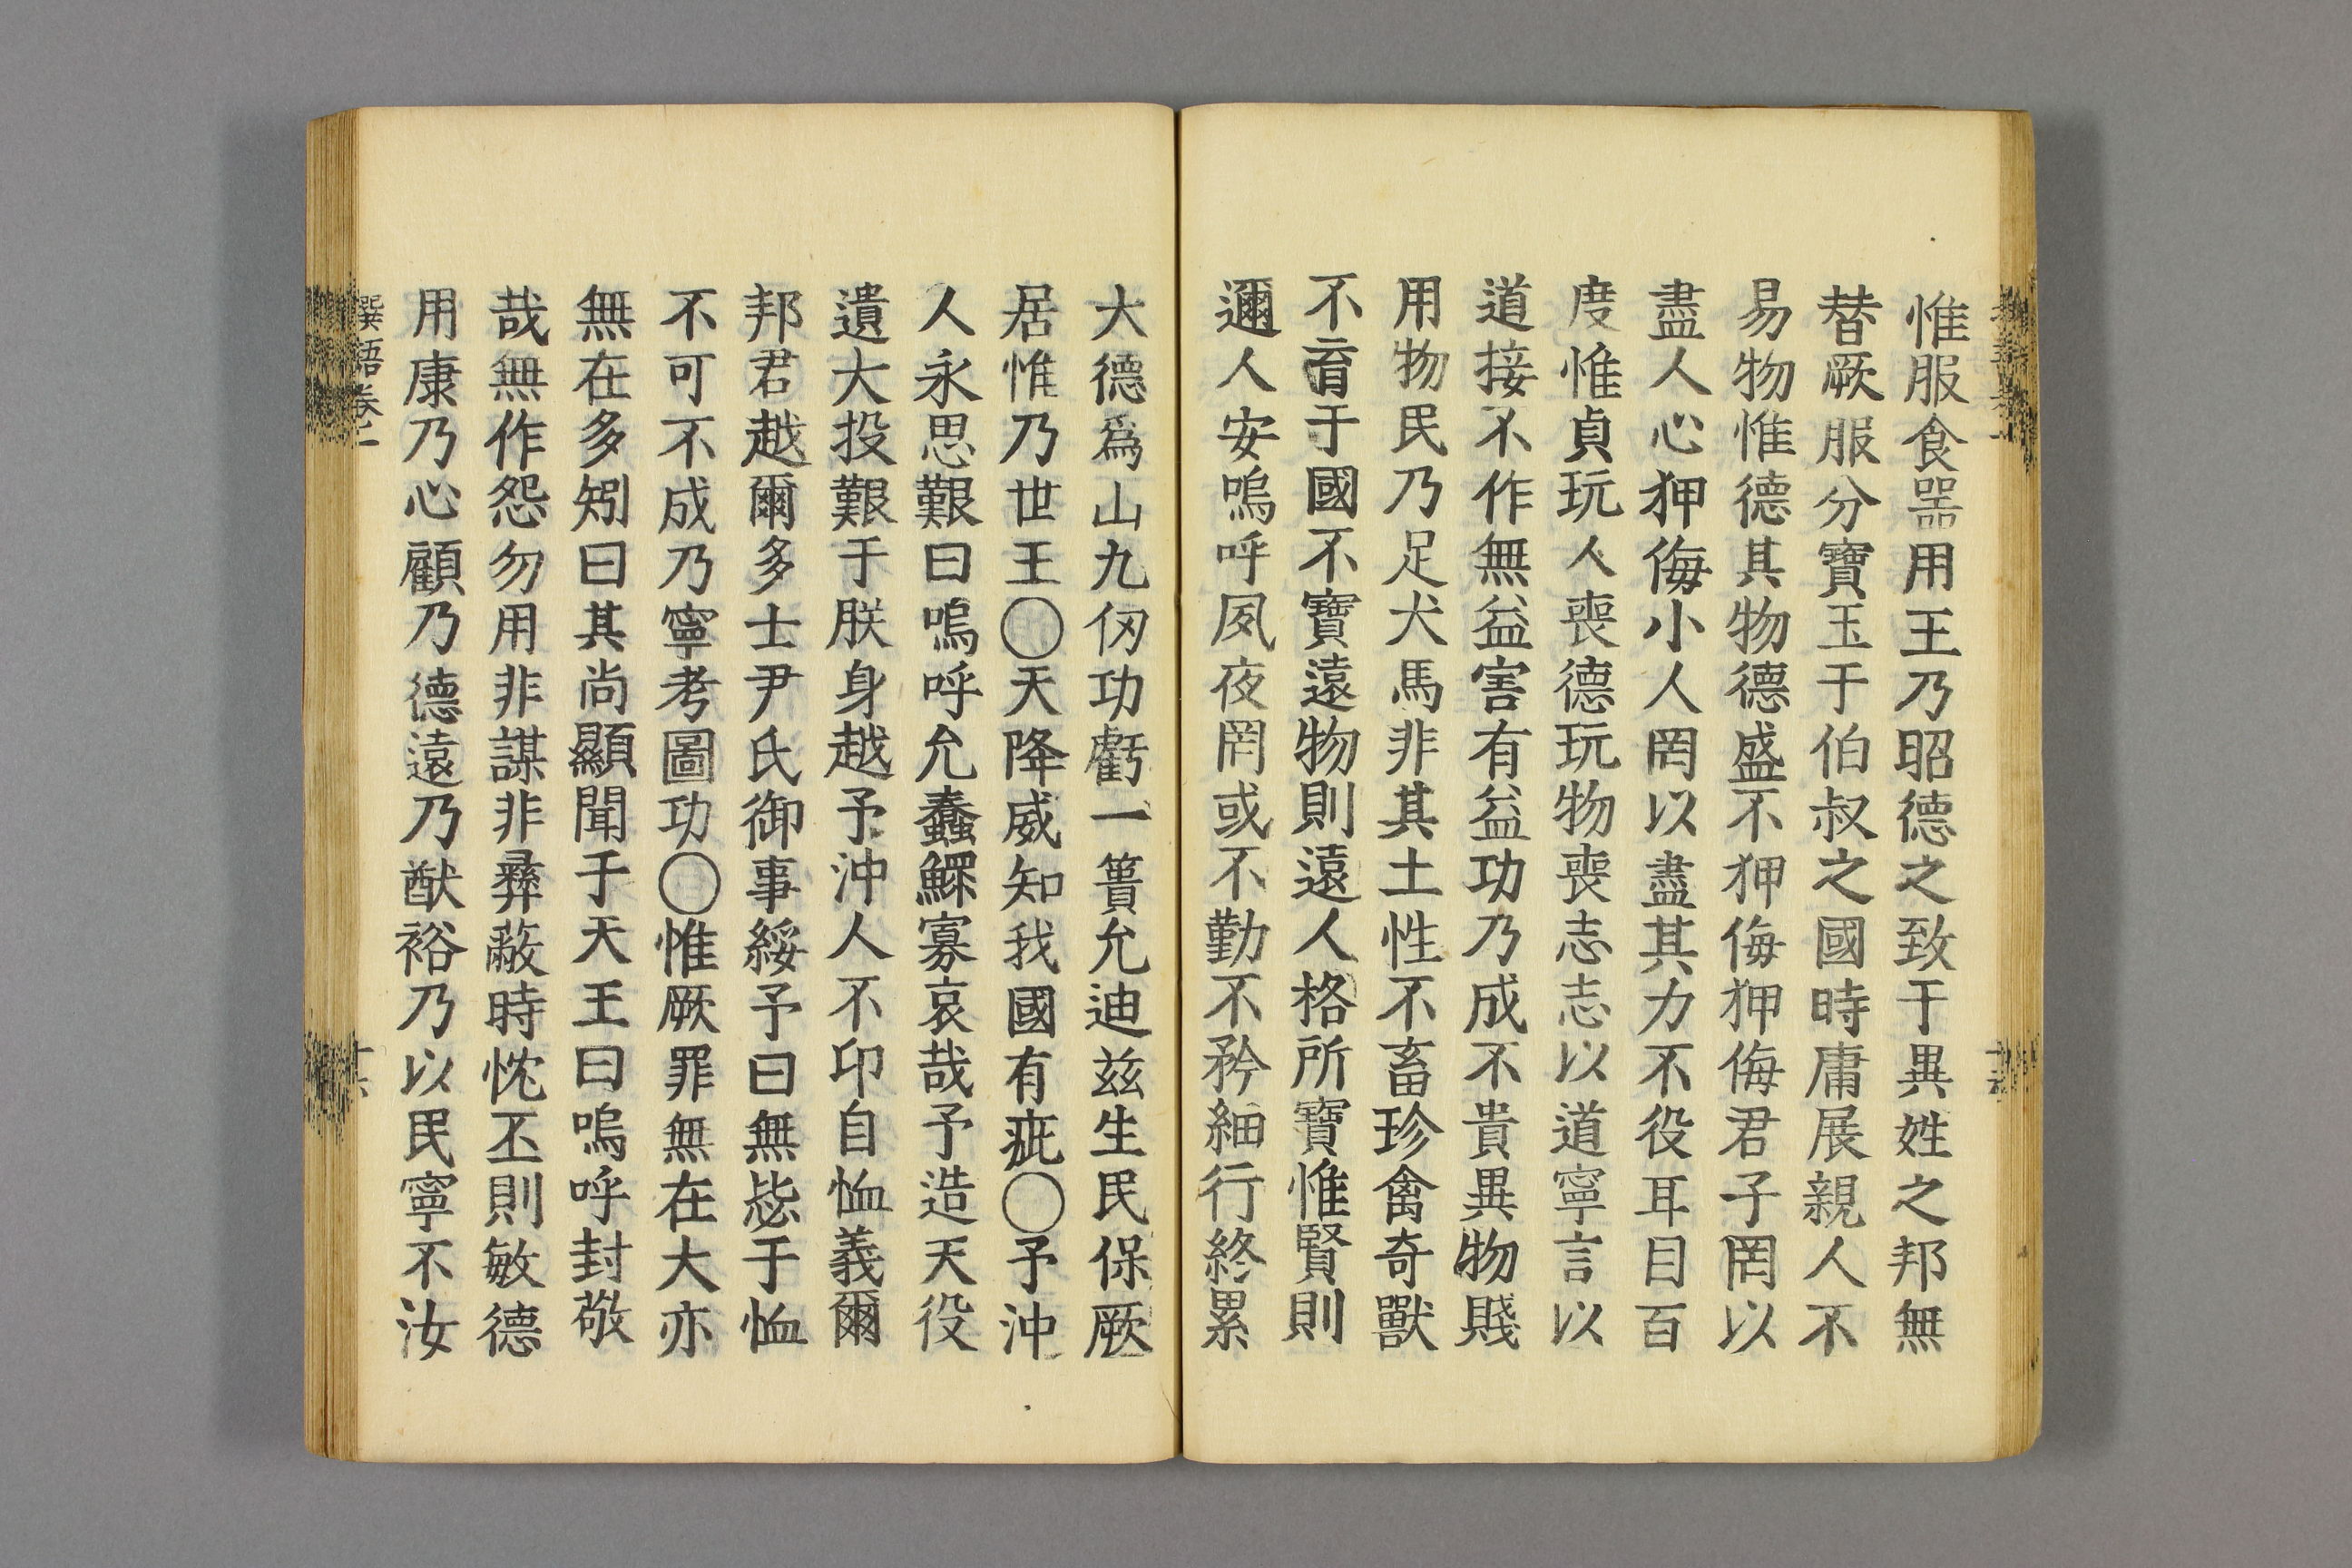 惟服食噐用王乃昭德之致于異姓之邦無
替厥服分寶玉于伯叔之國時庸展親人不
易物惟德其物德盛不狎侮狎侮君子罔以
盡人心狎侮小人罔以盡其力不役耳目百
度惟貞玩人喪德玩物喪志志以道寧言以
道接不作無益害有益功乃成不貴異物賤
用物民乃足犬馬非其土性不畜珍禽奇獸
不育于國不寶遠物則遠人格所寶惟賢則
邇人安嗚呼夙夜罔或不勤不矜細行終累
大德爲山九仞功虧一簣允迪兹生民保厥
居惟乃世王○天降威知我國有疵○予沖
人永思艱曰嗚呼允蠢鰥寡哀哉予造天役
遺大投艱于朕身越予沖人不卬自恤義爾
邦君越爾多士尹氏御事綏予曰無毖于恤
不可不成乃寧考圖功○惟厥罪無在大亦
無在多矧曰其尚顯聞于天王曰嗚呼封敬
哉無作怨勿用非謀非彝蔽時忱丕則敏德
用康乃心顧乃德遠乃猷裕乃以民寧不汝
撰語卷二
十六